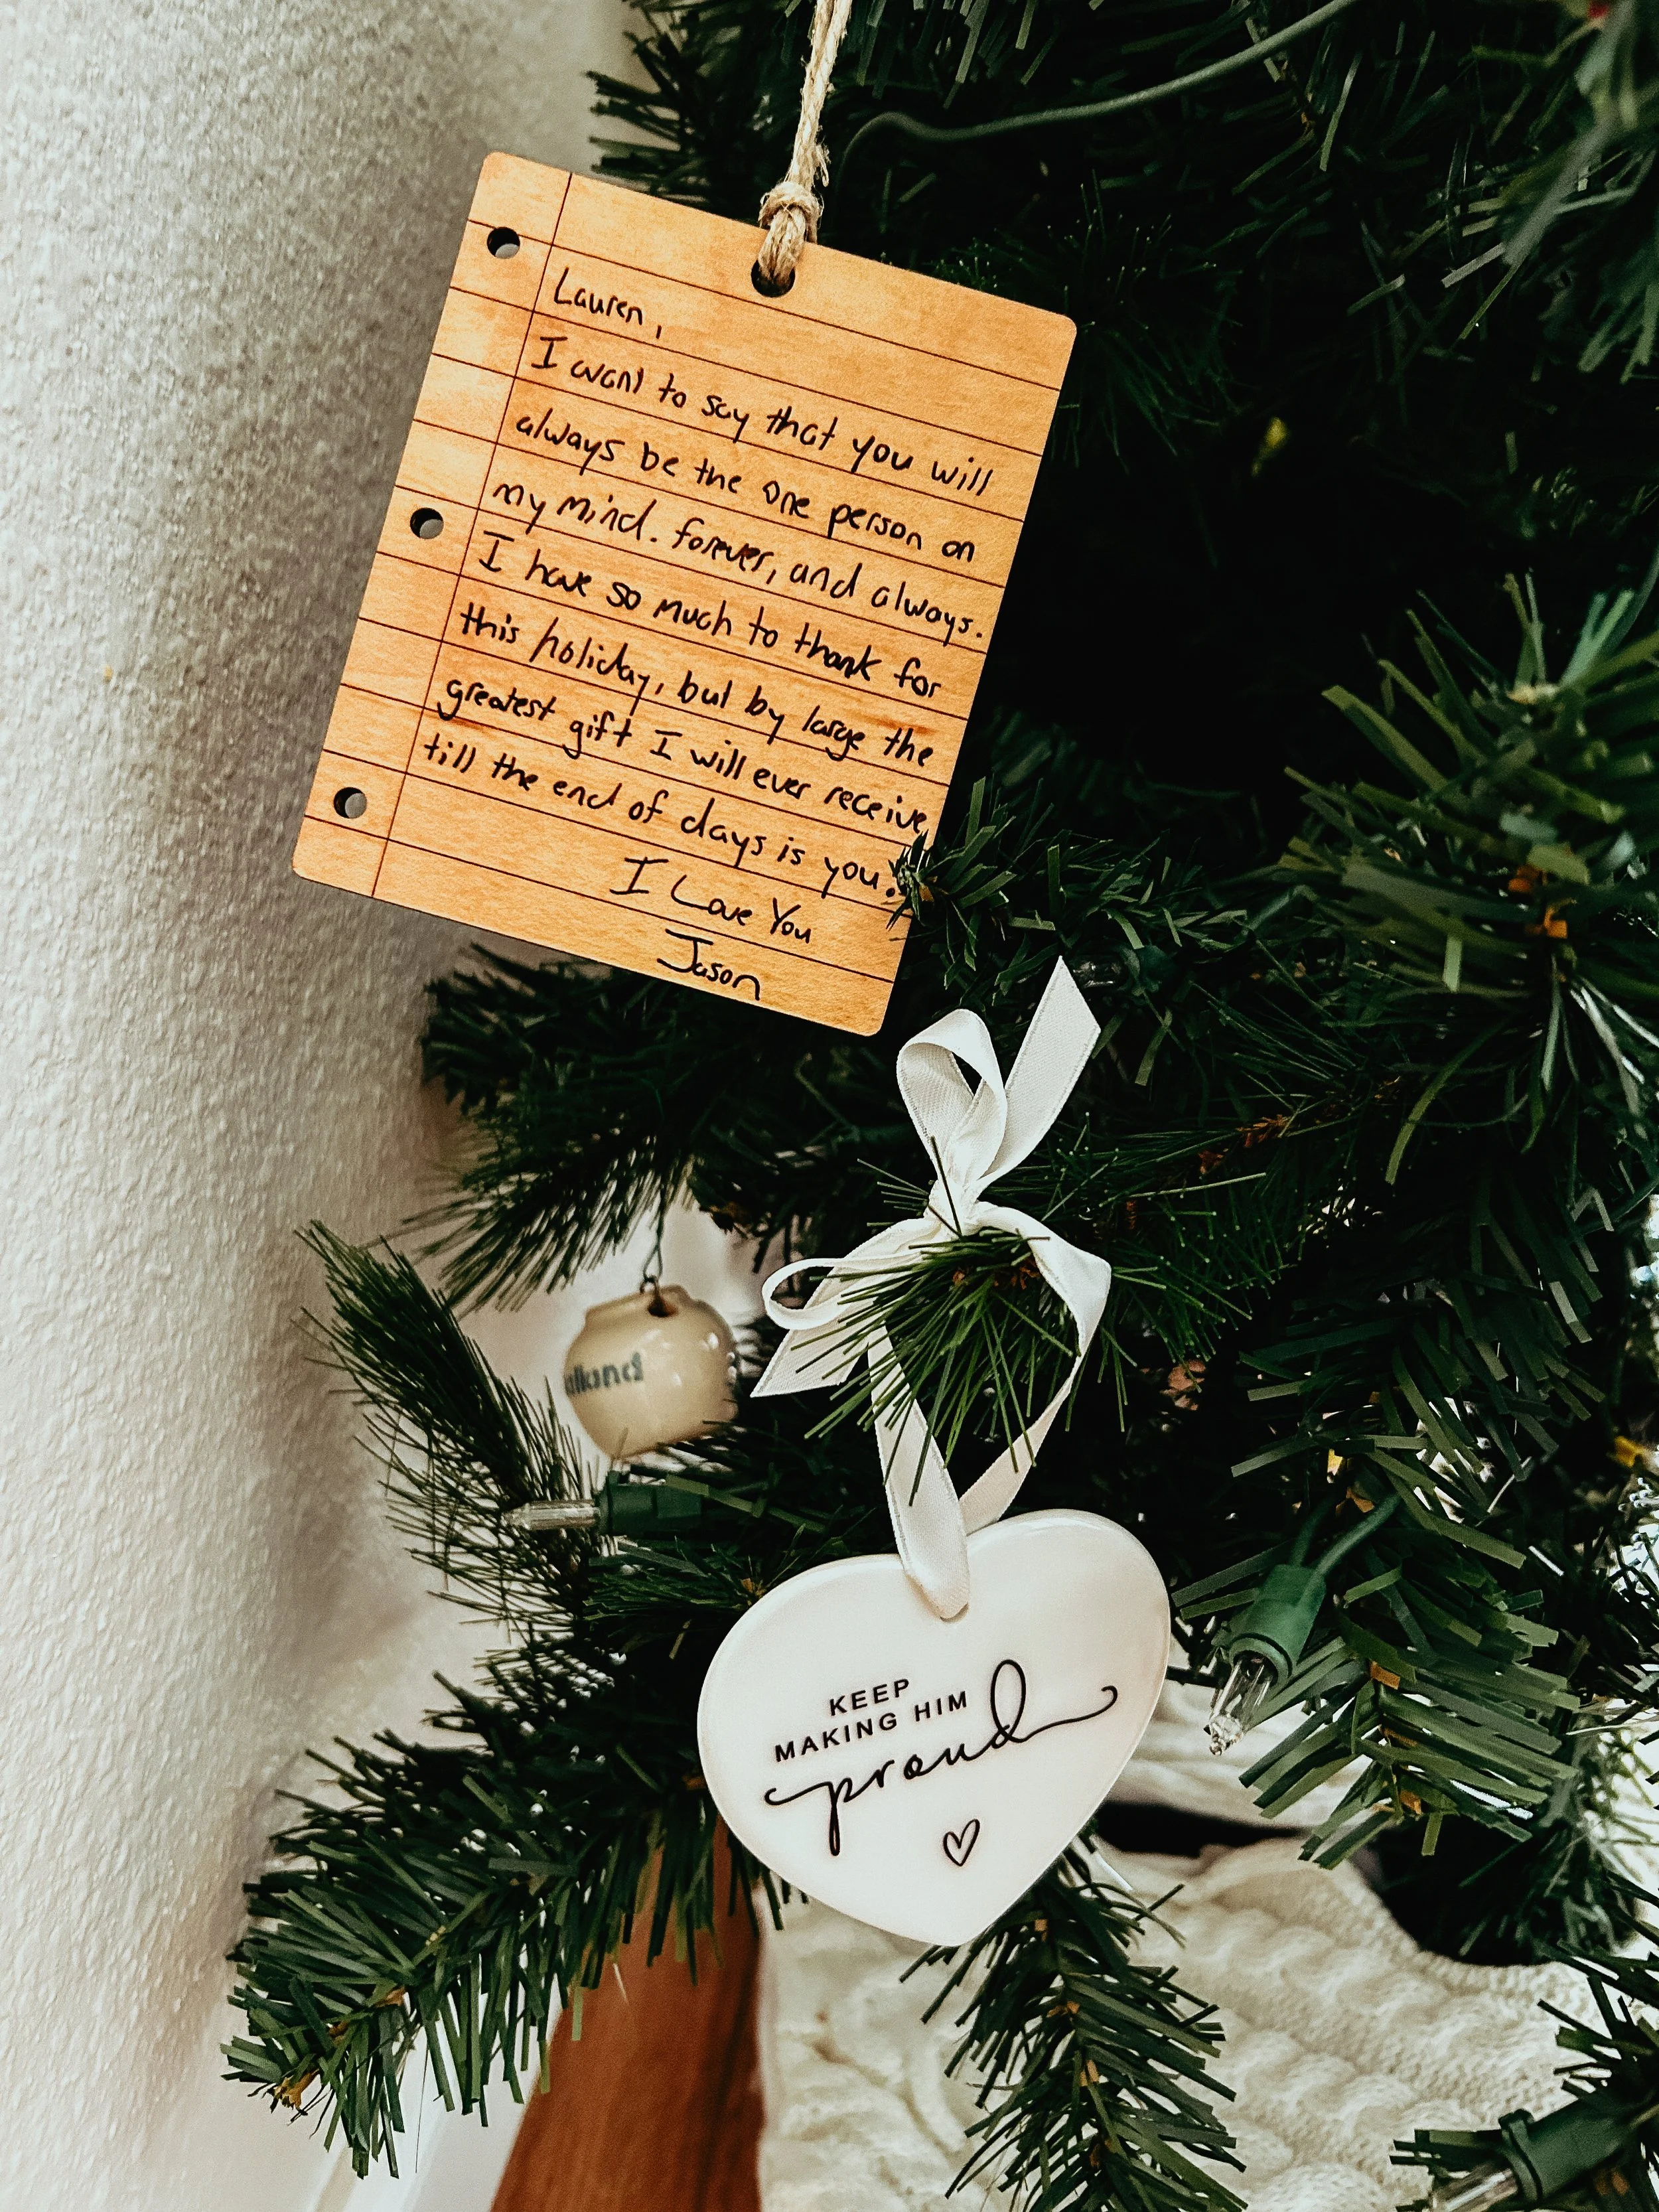 Lauren,
I want to say that you will
always be the one person on
my mind. forever, and always.
I have so much to thank for
this holiday, but by large the
greatest gift I will ever receive
till the end of days is you.
I Love You
Jason
KEEP
MAKING HIM
proud